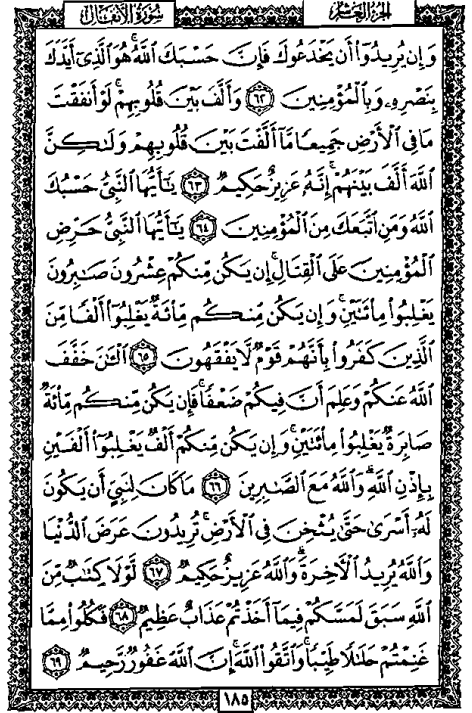 الجزء العاشر سورة الأنفال
وَإِن يُرِيدُوٓا۟ أَن يَخْدَعُوكَ فَإِنَّ حَسْبَكَ ٱللَّهُ ۚ هُوَ ٱلَّذِىٓ أَيَّدَكَ
بِنَصْرِهِۦ وَبِٱلْمُؤْمِنِينَ ٦٢ وَأَلَّفَ بَيْنَ قُلُوبِهِمْ ۚ لَوْ أَنفَقْتَ
مَا فِى ٱلْأَرْضِ جَمِيعًا مَّآ أَلَّفْتَ بَيْنَ قُلُوبِهِمْ وَلَـٰكِنَّ
ٱللَّهَ أَلَّفَ بَيْنَهُمْ ۚ إِنَّهُۥ عَزِيزٌ حَكِيمٌ ٦٣ يَـٰٓأَيُّهَا ٱلنَّبِىُّ حَسْبُكَ
ٱللَّهُ وَمَنِ ٱتَّبَعَكَ مِنَ ٱلْمُؤْمِنِينَ ٦٤ يَـٰٓأَيُّهَا ٱلنَّبِىُّ حَرِّضِ
ٱلْمُؤْمِنِينَ عَلَى ٱلْقِتَالِ ۚ إِن يَكُن مِّنكُمْ عِشْرُونَ صَـٰبِرُونَ
يَغْلِبُوا۟ مِا۟ئَتَيْنِ ۚ وَإِن يَكُن مِّنكُم مِّا۟ئَةٌ يَغْلِبُوٓا۟ أَلْفًا مِّنَ
ٱلَّذِينَ كَفَرُوا۟ بِأَنَّهُمْ قَوْمٌ لَّا يَفْقَهُونَ ٦٥ ٱلْـَٔـٰنَ خَفَّفَ
ٱللَّهُ عَنكُمْ وَعَلِمَ أَنَّ فِيكُمْ ضَعْفًا ۚ فَإِن يَكُن مِّنكُم مِّا۟ئَةٌ
صَابِرَةٌ يَغْلِبُوا۟ مِا۟ئَتَيْنِ ۚ وَإِن يَكُن مِّنكُمْ أَلْفٌ يَغْلِبُوٓا۟ أَلْفَيْنِ
بِإِذْنِ ٱللَّهِ ۗ وَٱللَّهُ مَعَ ٱلصَّـٰبِرِينَ ٦٦ مَا كَانَ لِنَبِىٍّ أَن يَكُونَ
لَهُۥٓ أَسْرَىٰ حَتَّىٰ يُثْخِنَ فِى ٱلْأَرْضِ ۚ تُرِيدُونَ عَرَضَ ٱلدُّنْيَا
وَٱللَّهُ يُرِيدُ ٱلْـَٔاخِرَةَ ۗ وَٱللَّهُ عَزِيزٌ حَكِيمٌ ٦٧ لَّوْلَا كِتَـٰبٌ مِّنَ
ٱللَّهِ سَبَقَ لَمَسَّكُمْ فِيمَآ أَخَذْتُمْ عَذَابٌ عَظِيمٌ ٦٨ فَكُلُوا۟ مِمَّا
غَنِمْتُمْ حَلَـٰلًا طَيِّبًا ۚ وَٱتَّقُوا۟ ٱللَّهَ ۚ إِنَّ ٱللَّهَ غَفُورٌ رَّحِيمٌ ٦٩
١٨٥